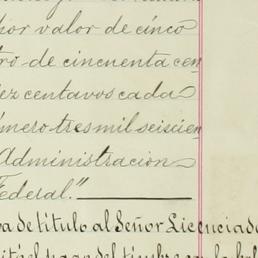 por valor de cinco
tro de cincuenta cen
ez centavos cada
úmero tres mil seiscien
Administracion
Federal."
a de título al Señor Licenciado
del timbre en la